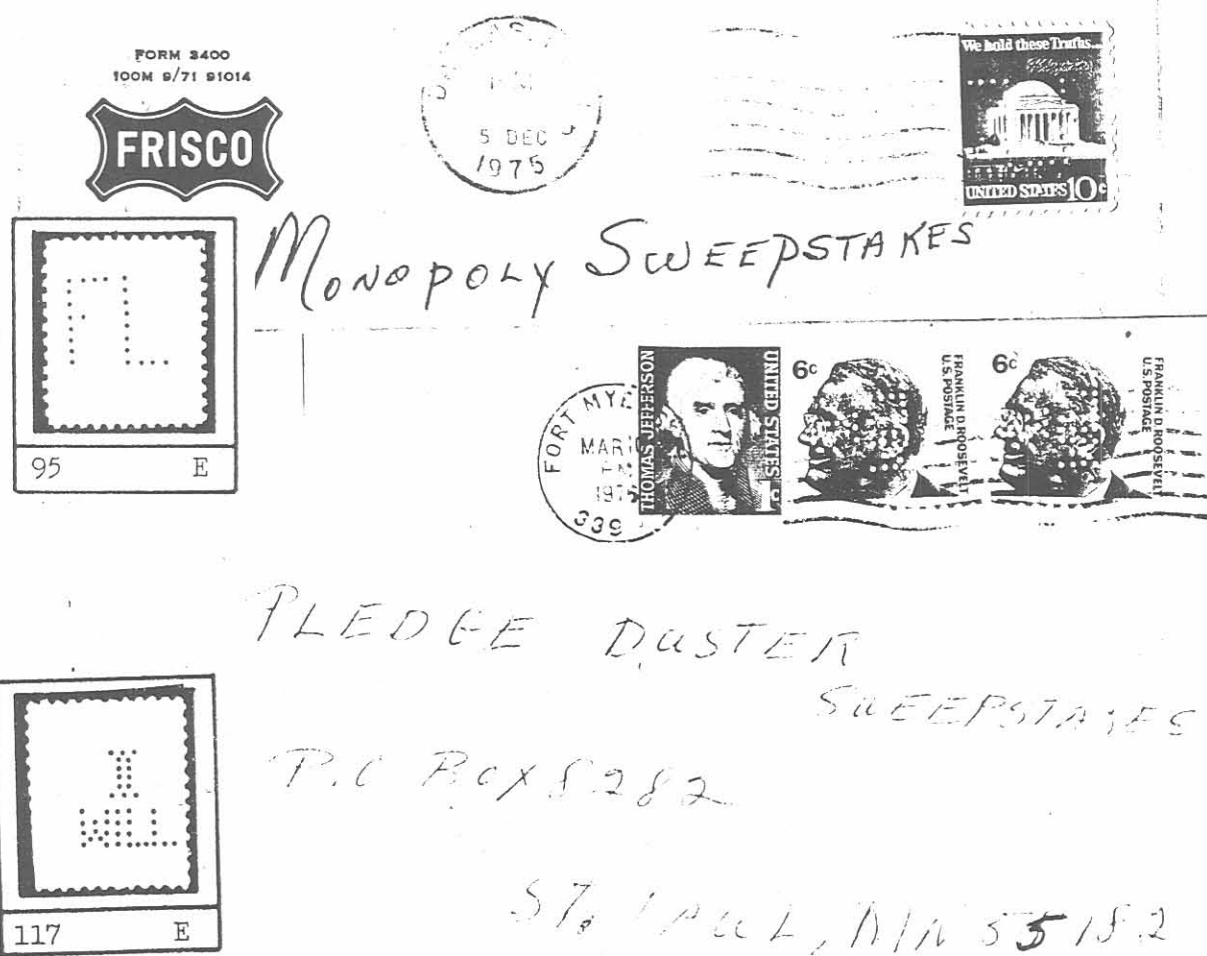 FORM 3400
100M 9/71 91014
FRISCO
5 DEC
1975
We hold these Truths...
UNITED STATES 10c
MONOPOLY SWEEPSTAKES
FL
95 E
FORT MYE
MAR
PM
197
339
THOMAS JEFFERSON
UNITED STATES
1c
6c
FRANKLIN D. ROOSEVELT
U.S. POSTAGE
6c
FRANKLIN D. ROOSEVELT
U.S. POSTAGE
PLEDGE DUSTER
SWEEPSTAKES
P.O BOX 8282
I
WILL
117 E
ST. PAUL, MN 55182